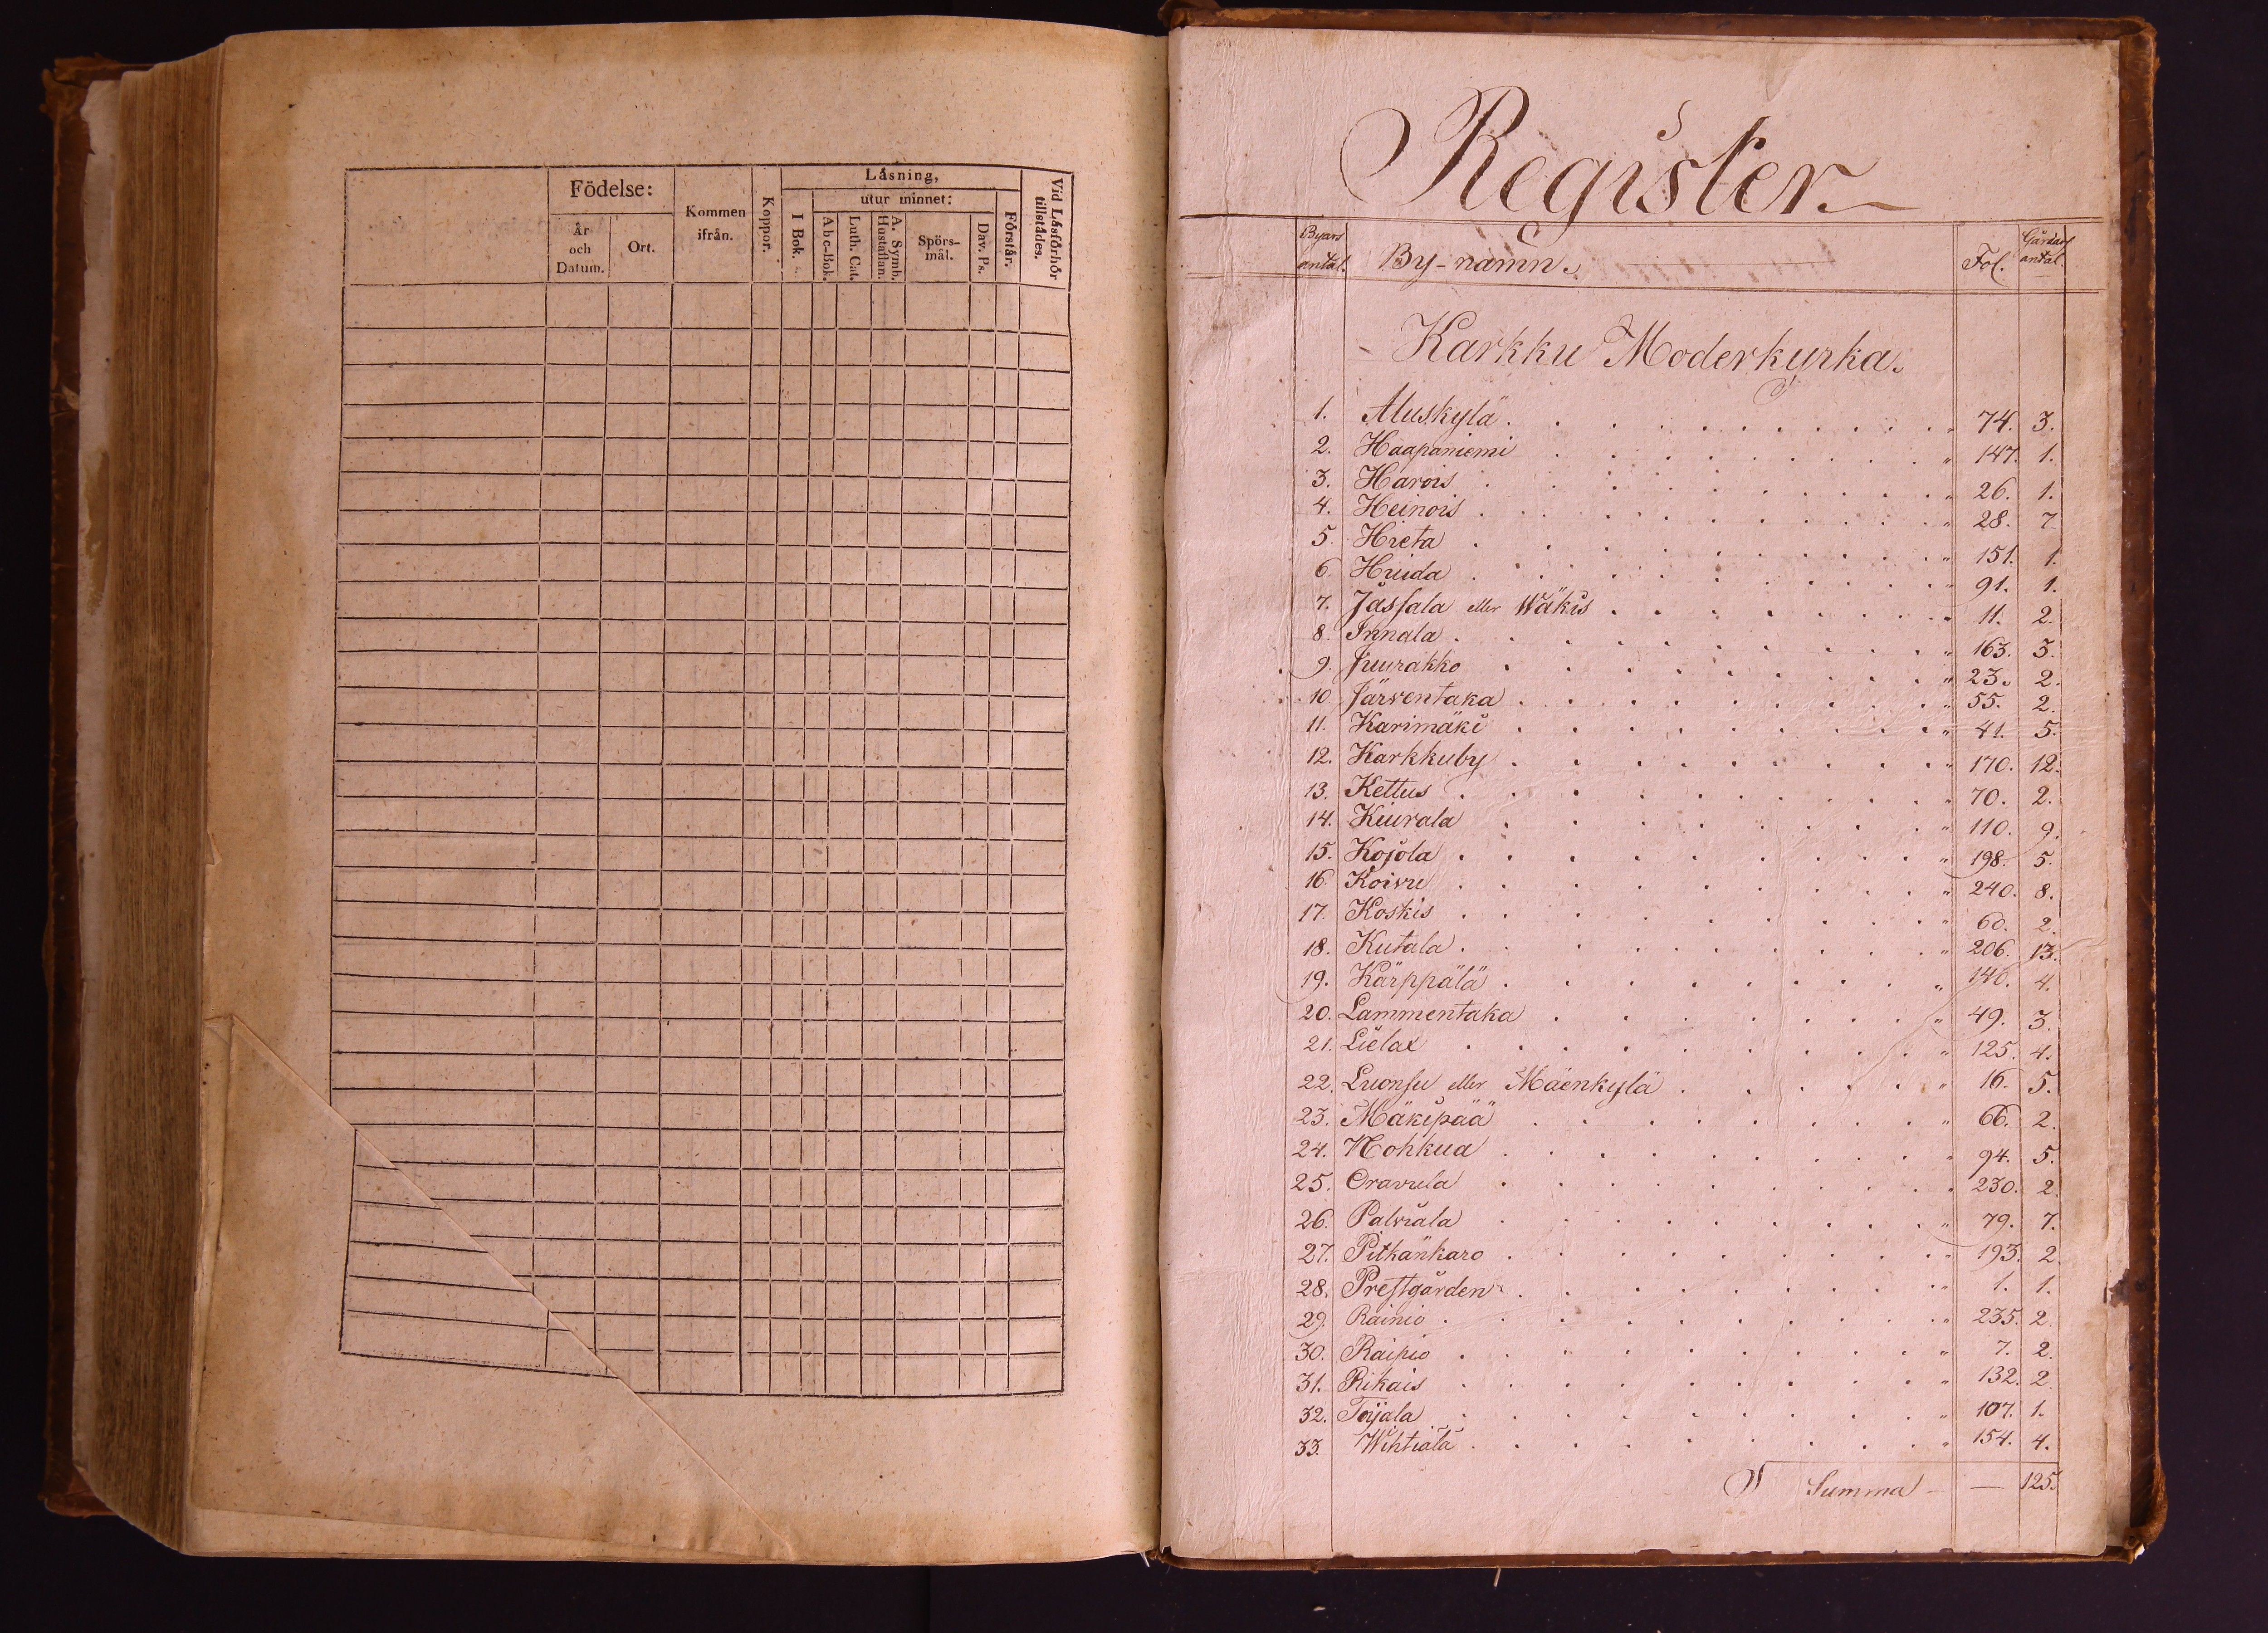 Födelse:
År och Datum.
Ort.
Kommen ifrån.
Koppor.
Läsning,
I Bok.
utur minnet:
Abc-Bok.
Luth. Cat.
A. Symb. Hustaflan.
Spörs-mål.
Dav. Ps.
Förstår.
Vid Läsförhör tillstädes.
Register
Byars antal. By-namn. Fol. Gårdars antal.
Karkku Moderkyrka.
1. Aluskylä . . . " 74. 3.
2. Haapaniemi . . . " 147. 1.
3. Harois . . . " 26. 1.
4. Heinois . . . " 28. 7.
5. Hieta . . . " 151. 1.
6. Huida . . . " 91. 1.
7. Jassala eller Wäkis . . . " 11. 2.
8. Innala . . . " 163. 3.
9. Juurakko . . . " 23. 2.
10. Järventaka . . . " 55. 2.
11. Karimäki . . . " 41. 5.
12. Karkkuby . . . " 170. 12.
13. Kettus . . . " 70. 2.
14. Kiurala . . . " 110. 9.
15. Kojola . . . " 198. 5.
16. Koivu . . . " 240. 8.
17. Koskis . . . " 60. 2.
18. Kutala . . . " 206. 13.
19. Kärppälä . . . " 140. 4.
20. Lammentaka . . . " 49. 3.
21. Lielax . . . " 125. 4.
22. Luonsu eller Mäenkylä . . . " 16. 5.
23. Mäkipää . . . " 66. 2.
24. Nohkua . . . " 94. 5.
25. Oravula . . . " 230. 2.
26. Palviala . . . " 79. 7.
27. Pitkänkaro . . . " 193. 2.
28. Prestgården . . . " 1. 1.
29. Rainio . . . " 235. 2.
30. Raipio . . . " 7. 2.
31. Rikais . . . " 132. 2.
32. Toijala . . . " 107. 1.
33. Wihtiälä . . . " 154. 4.
Summa — — 125.